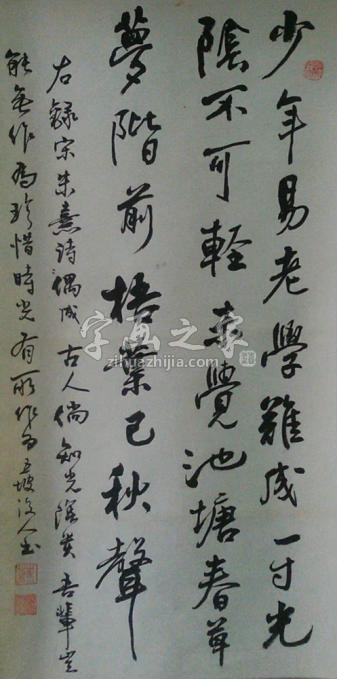 少年易老學難成一寸光
陰不可輕未覺池塘春草
夢階前梧葉已秋聲
右錄宋朱熹詩偶成 古人倘知光陰貴 吾輩豈
能無作為珍惜時光有所作為
字画之家
zihuazhijia.com